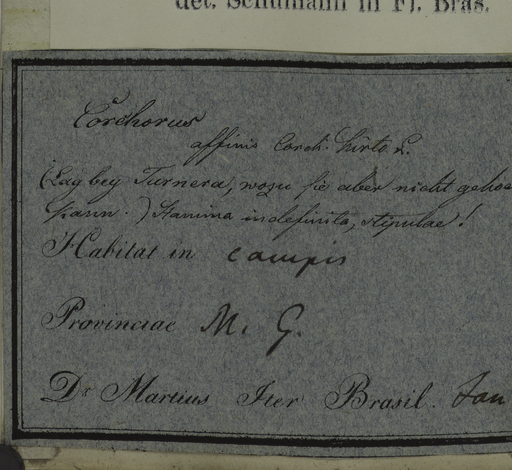 det. Schumann in Fl. Bras.
Corchorus
affinis Corch. hirto L.
(Lag bey Turnera, wozu sie aber nicht gehoe
kann.) Stamina indefinita, stipulae!
Habitat in campis
Provinciae M. G.
Dr Martius Iter Brasil. Jan